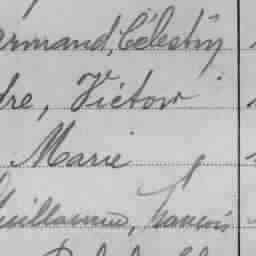 ermand, Célestin
dre, Victor
Marie
Guillaume, François